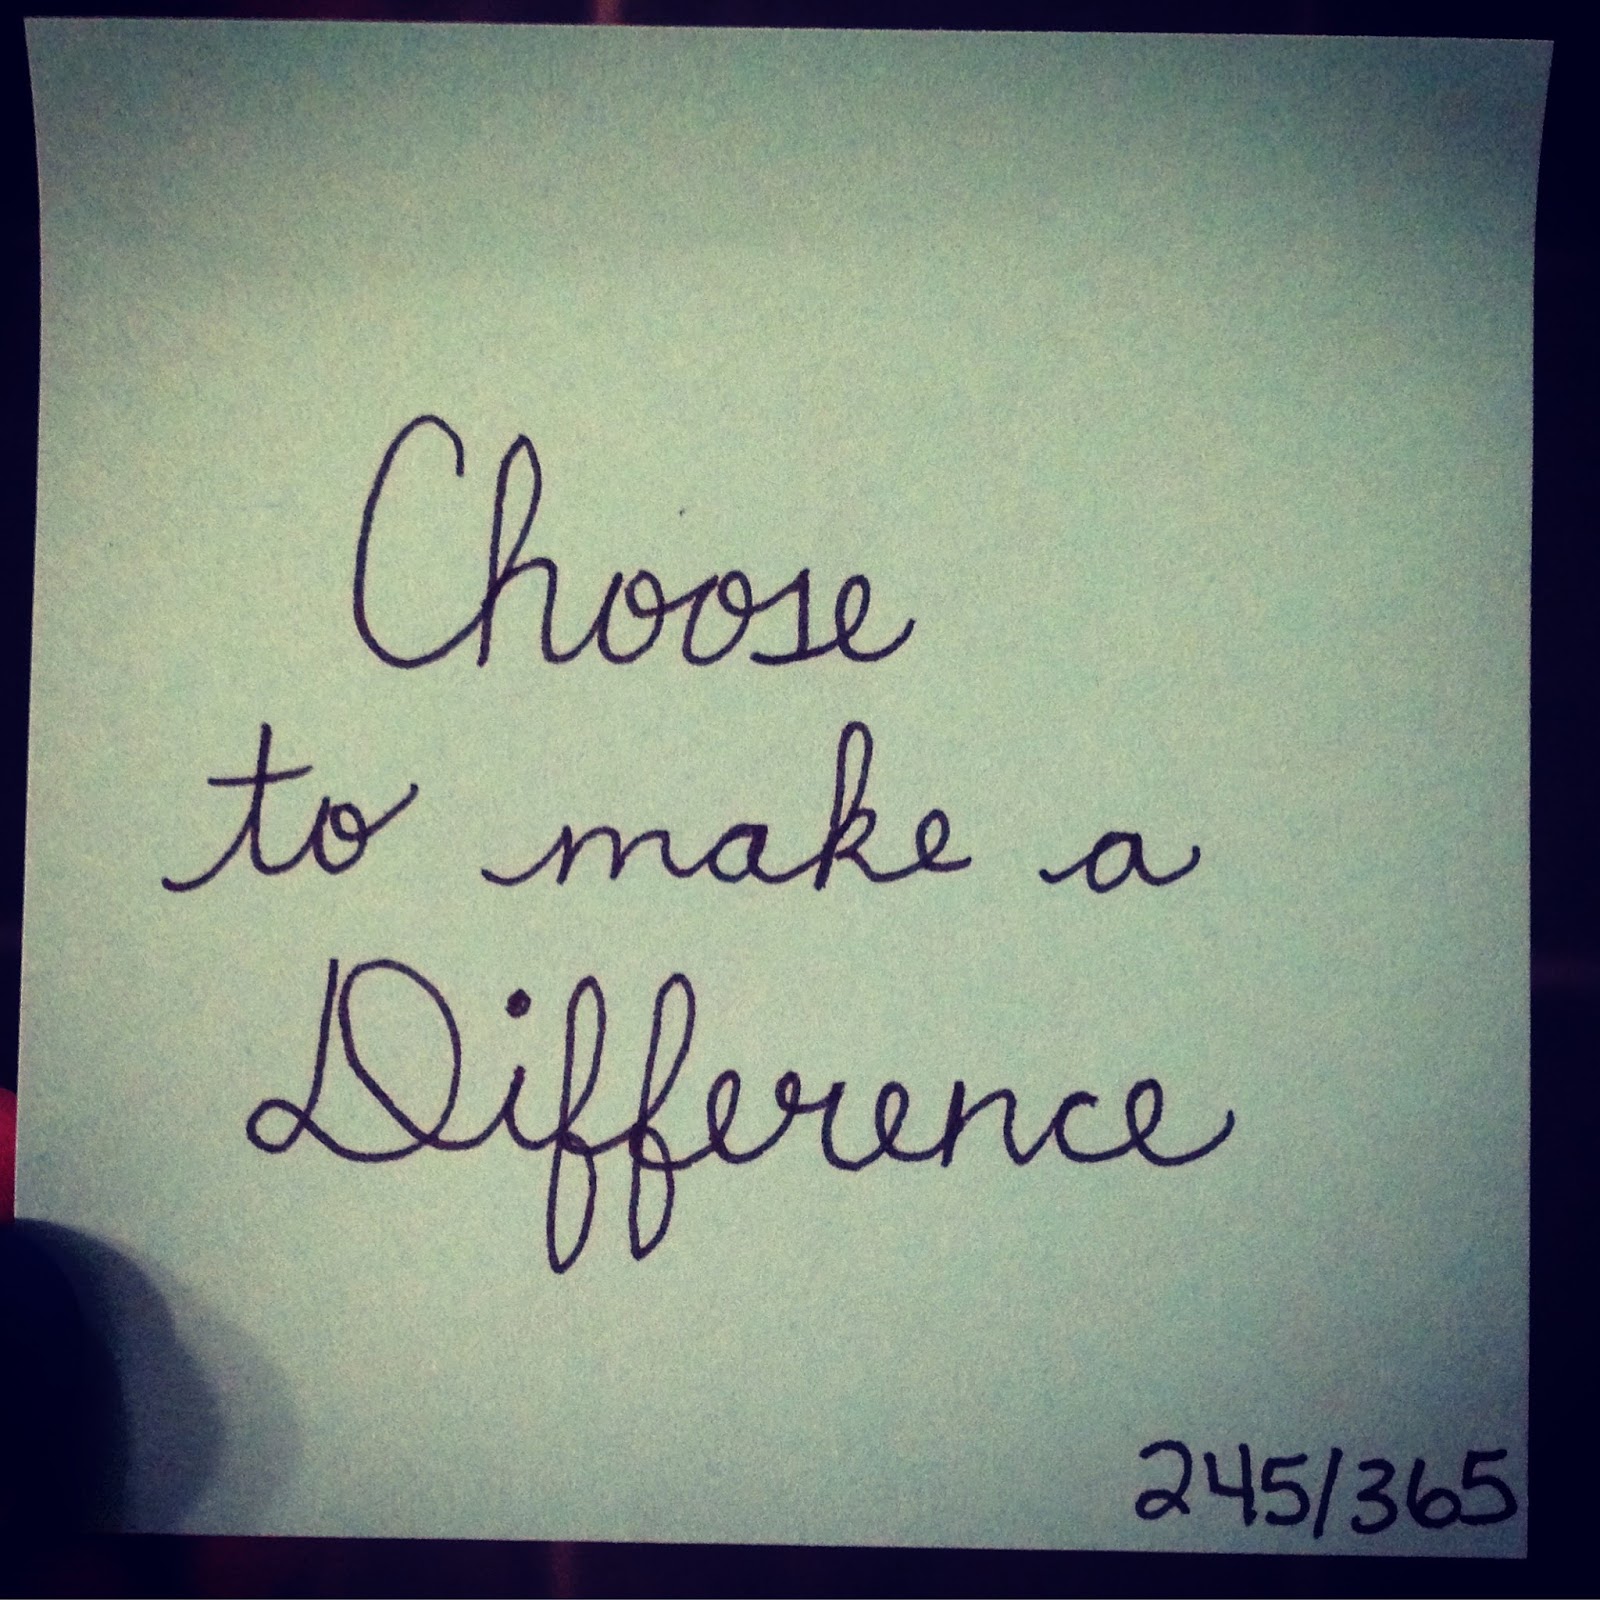 Choose
to make a
Difference
245/365